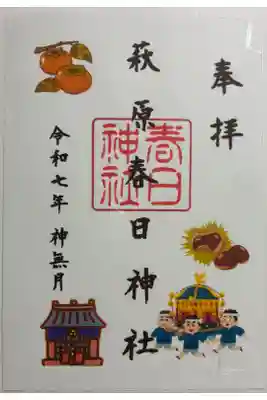 奉拝
萩原春日神社
春日神社
令和七年 神無月